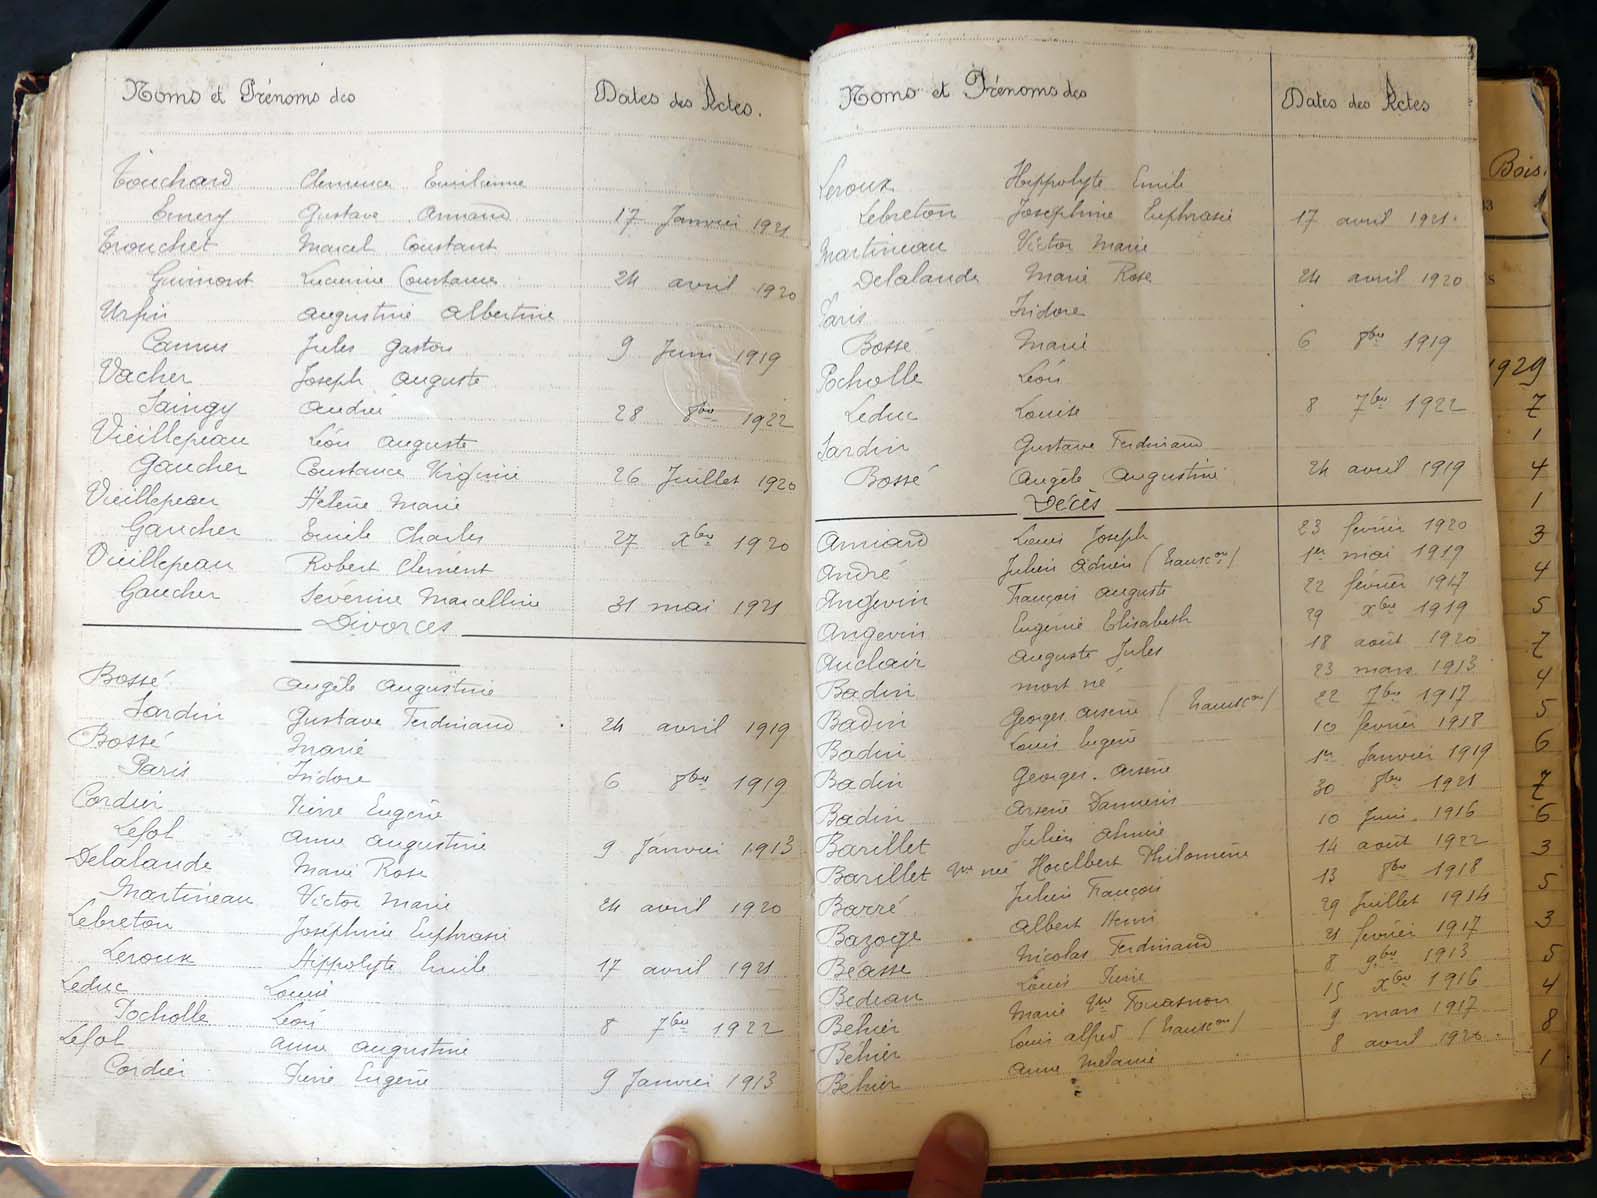 Noms et Prénoms des Dates des Actes.
Touchard Clemence Emilienne
Emery Gustave Armand 17 Janvier 1921
Trouchet Marcel Constant
Guimont Lucienne Constance 24 avril 1920
Urfin Augustine Albertine
Camus Jules Gaston 9 Juin 1919
Vacher Joseph Auguste
Saingy André 28 8bre 1922
Vieillepeau Léon Auguste
Gaucher Constance Virginie 26 Juillet 1920
Vieillepeau Hélène Marie
Gaucher Emile Charles 27 Xbre 1920
Vieillepeau Robert Clément
Gaucher Séverine Marcelline 31 mai 1921
Divorces
Bossé Angèle Augustine
Jardin Gustave Ferdinand 24 avril 1919
Bossé Marie
Paris Isidore 6 8bre 1919
Cordier Pierre Eugène
Lefol Anne Augustine 9 Janvier 1913
Delalande Marie Rose
Martineau Victor Marie 24 avril 1920
Lebreton Joséphine Euphrasie
Leroux Hippolyte Emile 17 avril 1921
Leduc Louise
Pocholle Léon 8 7bre 1922
Lefol Anne Augustine
Cordier Pierre Eugène 9 Janvier 1913
Noms et Prénoms des Dates des Actes
Leroux Hippolyte Emile
Lebreton Joséphine Euphrasie 17 avril 1921
Martineau Victor Marie
Delalande Marie Rose 24 avril 1920
Paris Isidore
Bossé Marie 6 8bre 1919
Pocholle Léon
Leduc Louise 8 7bre 1922
Jardin Gustave Ferdinand
Bossé Angèle Augustine 24 avril 1919
Décès
Amiard Louis Joseph 23 février 1920
André Julien Adrien (transcon) 1er mai 1919
Angevin François Auguste 22 février 1917
Angevin Eugénie Elisabeth 29 Xbre 1919
Auclair Auguste Jules 18 août 1920
Badin mort né 23 mars 1913
Badin Georges Arsène (transcon) 22 7bre 1917
Badin Louis Eugène 10 février 1918
Badin Georges Arsène 1er Janvier 1919
Badin Arsène 30 8bre 1921
Barillet Julien Aimé 10 Juin 1916
Barillet Vve née Philomène 14 août 1922
Barré Julien François 13 8bre 1918
Bazoge Albert Henri 29 Juillet 1914
Béasse Nicolas Ferdinand 21 février 1917
Bedeau Louis Pierre 8 9bre 1913
Béhier Marie 15 Xbre 1916
Béhier Louis Alfred (transcon) 9 mars 1917
Béhier Anne Mélanie 8 avril 1920
Bois.
1929
7
1
4
1
3
4
5
7
4
5
6
7
6
3
5
3
5
4
8
1